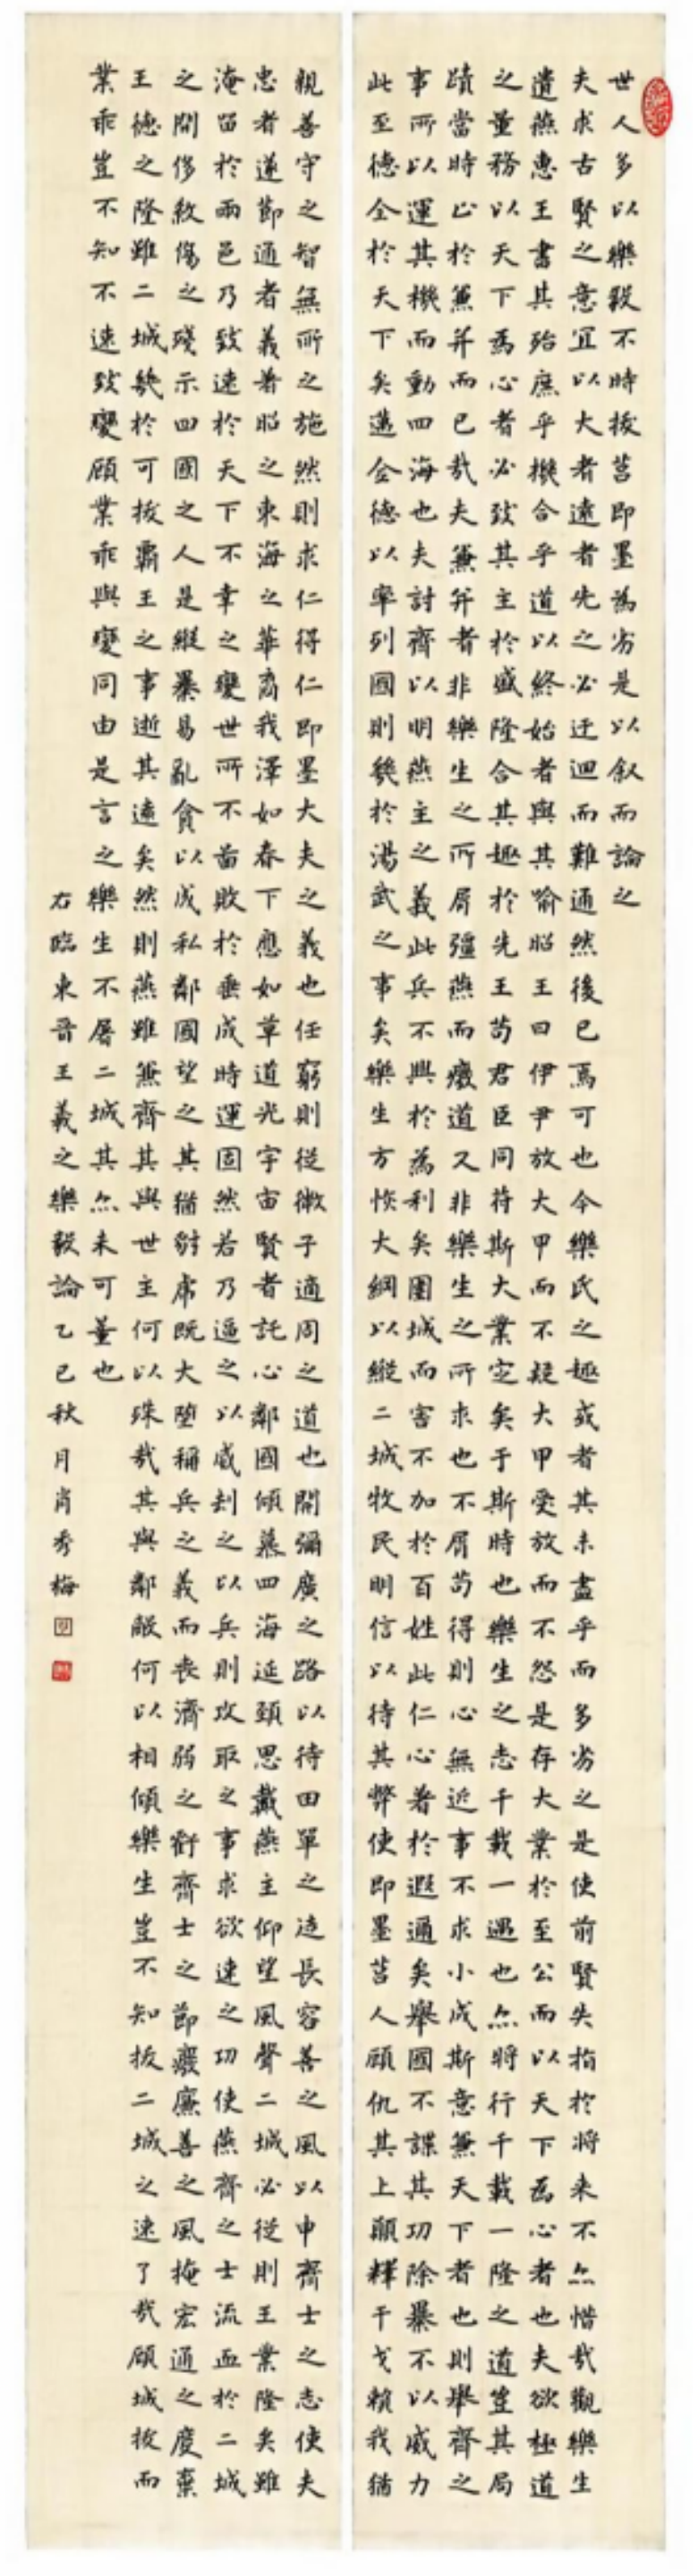 世人多以樂毅不時拔莒即墨為劣是以叙而論之
夫求古賢之意宜以大者遠者先之必迂迴而難通然後已焉可也今樂氏之趣或者其未盡乎而多劣之是使前賢失指於將来不亦惜哉觀樂生
遺燕惠王書其殆庶乎機合乎道以終始者與其喻昭王曰伊尹放大甲而不疑大甲受放而不怨是存大業於至公而以天下為心者也夫欲極道
之量務以天下為心者必致其主於盛隆合其趣於先王苟君臣同符斯大業定矣于斯時也樂生之志千載一遇也亦將行千載一隆之道豈其局
蹟當時止於蒹并而已哉夫蒹并者非樂生之所屑彊燕而癈道又非樂生之所求也不屑苟得則心無近事不求小成斯意蒹天下者也則舉齊之
事所以運其機而動四海也夫討齊以明燕主之義此兵不興於為利矣圍城而害不加於百姓此仁心著於遐邇矣舉國不謀其功除暴不以威力
此至德全於天下矣邁全德以率列國則幾於湯武之事矣樂生方恢大綱以縱二城牧民明信以待其弊使即墨莒人顧仇其上願釋干戈賴我猶
親善守之智無所之施然則求仁得仁即墨大夫之義也任窮則從微子適周之道也開彌廣之路以待田單之徒長容善之風以申齊士之志使夫
忠者遂節通者義著昭之東海之華裔我澤如春下應如草道光宇宙賢者託心鄰國傾慕四海延頸思戴燕主仰望風聲二城必從則王業隆矣雖
淹留於兩邑乃致速於天下不幸之變世所不啚敗於垂成時運固然若乃逼之以威劫之以兵則攻取之事求欲速之功使燕齊之士流血於二城
之間侈殺傷之殘示四國之人是縱暴易亂貪以成私鄰國望之其猶豺虎既大墮稱兵之義而喪濟弱之仁虧齊士之節癈廉善之風掩宏通之度棄
王德之隆雖二城幾於可拔霸王之事逝其遠矣然則燕雖蒹齊其與世主何以殊哉其與鄰敵何以相傾樂生豈不知拔二城之速了哉顧城拔而
業乖豈不知不速致變顧業乖與變同由是言之樂生不屠二城其亦未可量也
右臨東晋王羲之樂毅論乙巳秋月肖秀梅